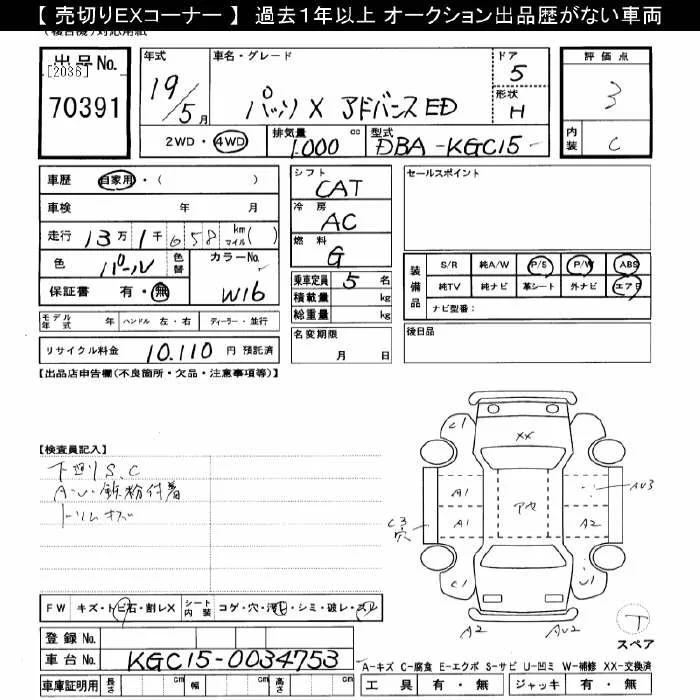 【 売切りEXコーナー 】 過去1年以上 オークション出品歴がない車両
出品No.
[2036]
70391
年式
19/5月
車名・グレード
パッソ X アドバンスED
ドア
5
形状
H
2WD・4WD
排気量
1.000 cc
型式
DBA-KGC15
評価点
3
内装
C
車歴 自家用・( )
車検 年 月
走行 13万1千658 km マイル( )
色 パール 色替 カラーNo. W16
保証書 有・無
シフト
CAT
冷房
AC
燃料
G
乗車定員 5 名
積載量 kg
総重量 kg
セールスポイント
装備品
S/R 純A/W P/S P/W ABS
純TV 純ナビ 革シート 外ナビ エアB
ナビ型番:
モデル年式 年 ハンドル 左・右 ディーラー・並行
リサイクル料金 10.110 円 預託済
名変期限
月 日
後日品
【出品店申告欄(不良箇所・欠品・注意事項等)】
【検査員記入】
下廻りS.C
A・U・鉄粉付着
トリムキズ
C1
XX
A1
A1
アセ
A2
AU3
C3
穴
C1
U1
A2
AU2
T
スペア
FW キズ・トビ石・割レX シート内装 コゲ・穴・汚レ・シミ・破レ・スレ
登録No.
車台No. KGC15-0034753
A-キズ C-腐食 E-エクボ S-サビ U-凹ミ W-補修 XX-交換済
車庫証明用 長さ cm 幅 cm 高さ cm
工具 有・無 ジャッキ 有・無